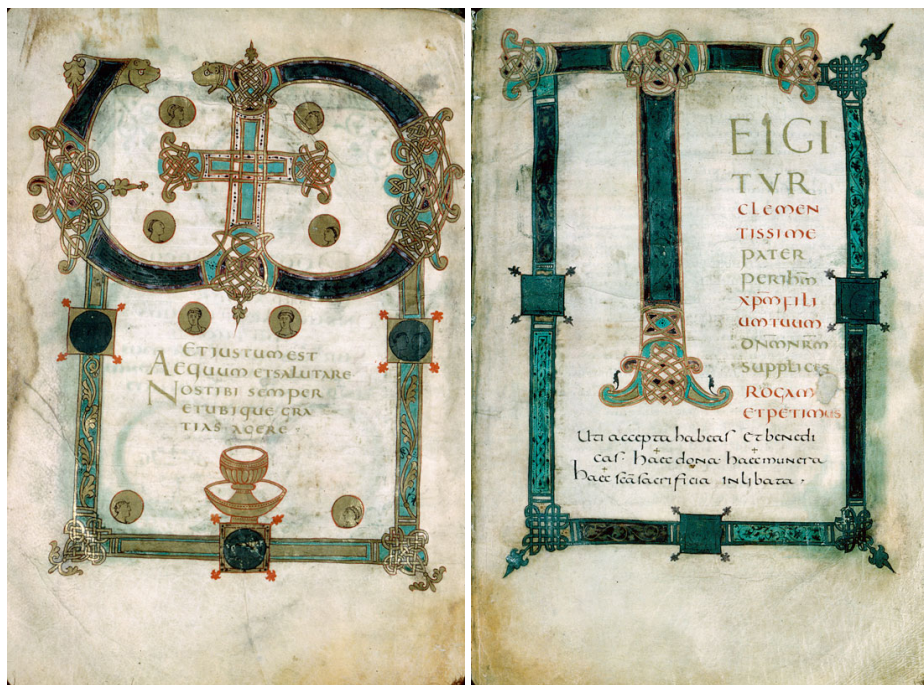 VD
ET IUSTUM EST
AEQUUM ET SALUTARE
NOS TIBI SEMPER
ET UBIQUE GRA
TIAS AGERE
TE IGI
TVR
CLEMEN
TISSIME
PATER
PER IHM
XPM FILI
UM TUUM
DNM NRM
SUPPLICES
ROGAM
ET PETIMUS
Uti accepta habeas et benedi
cas haec dona haec munera
haec sca sacrificia inlibata.